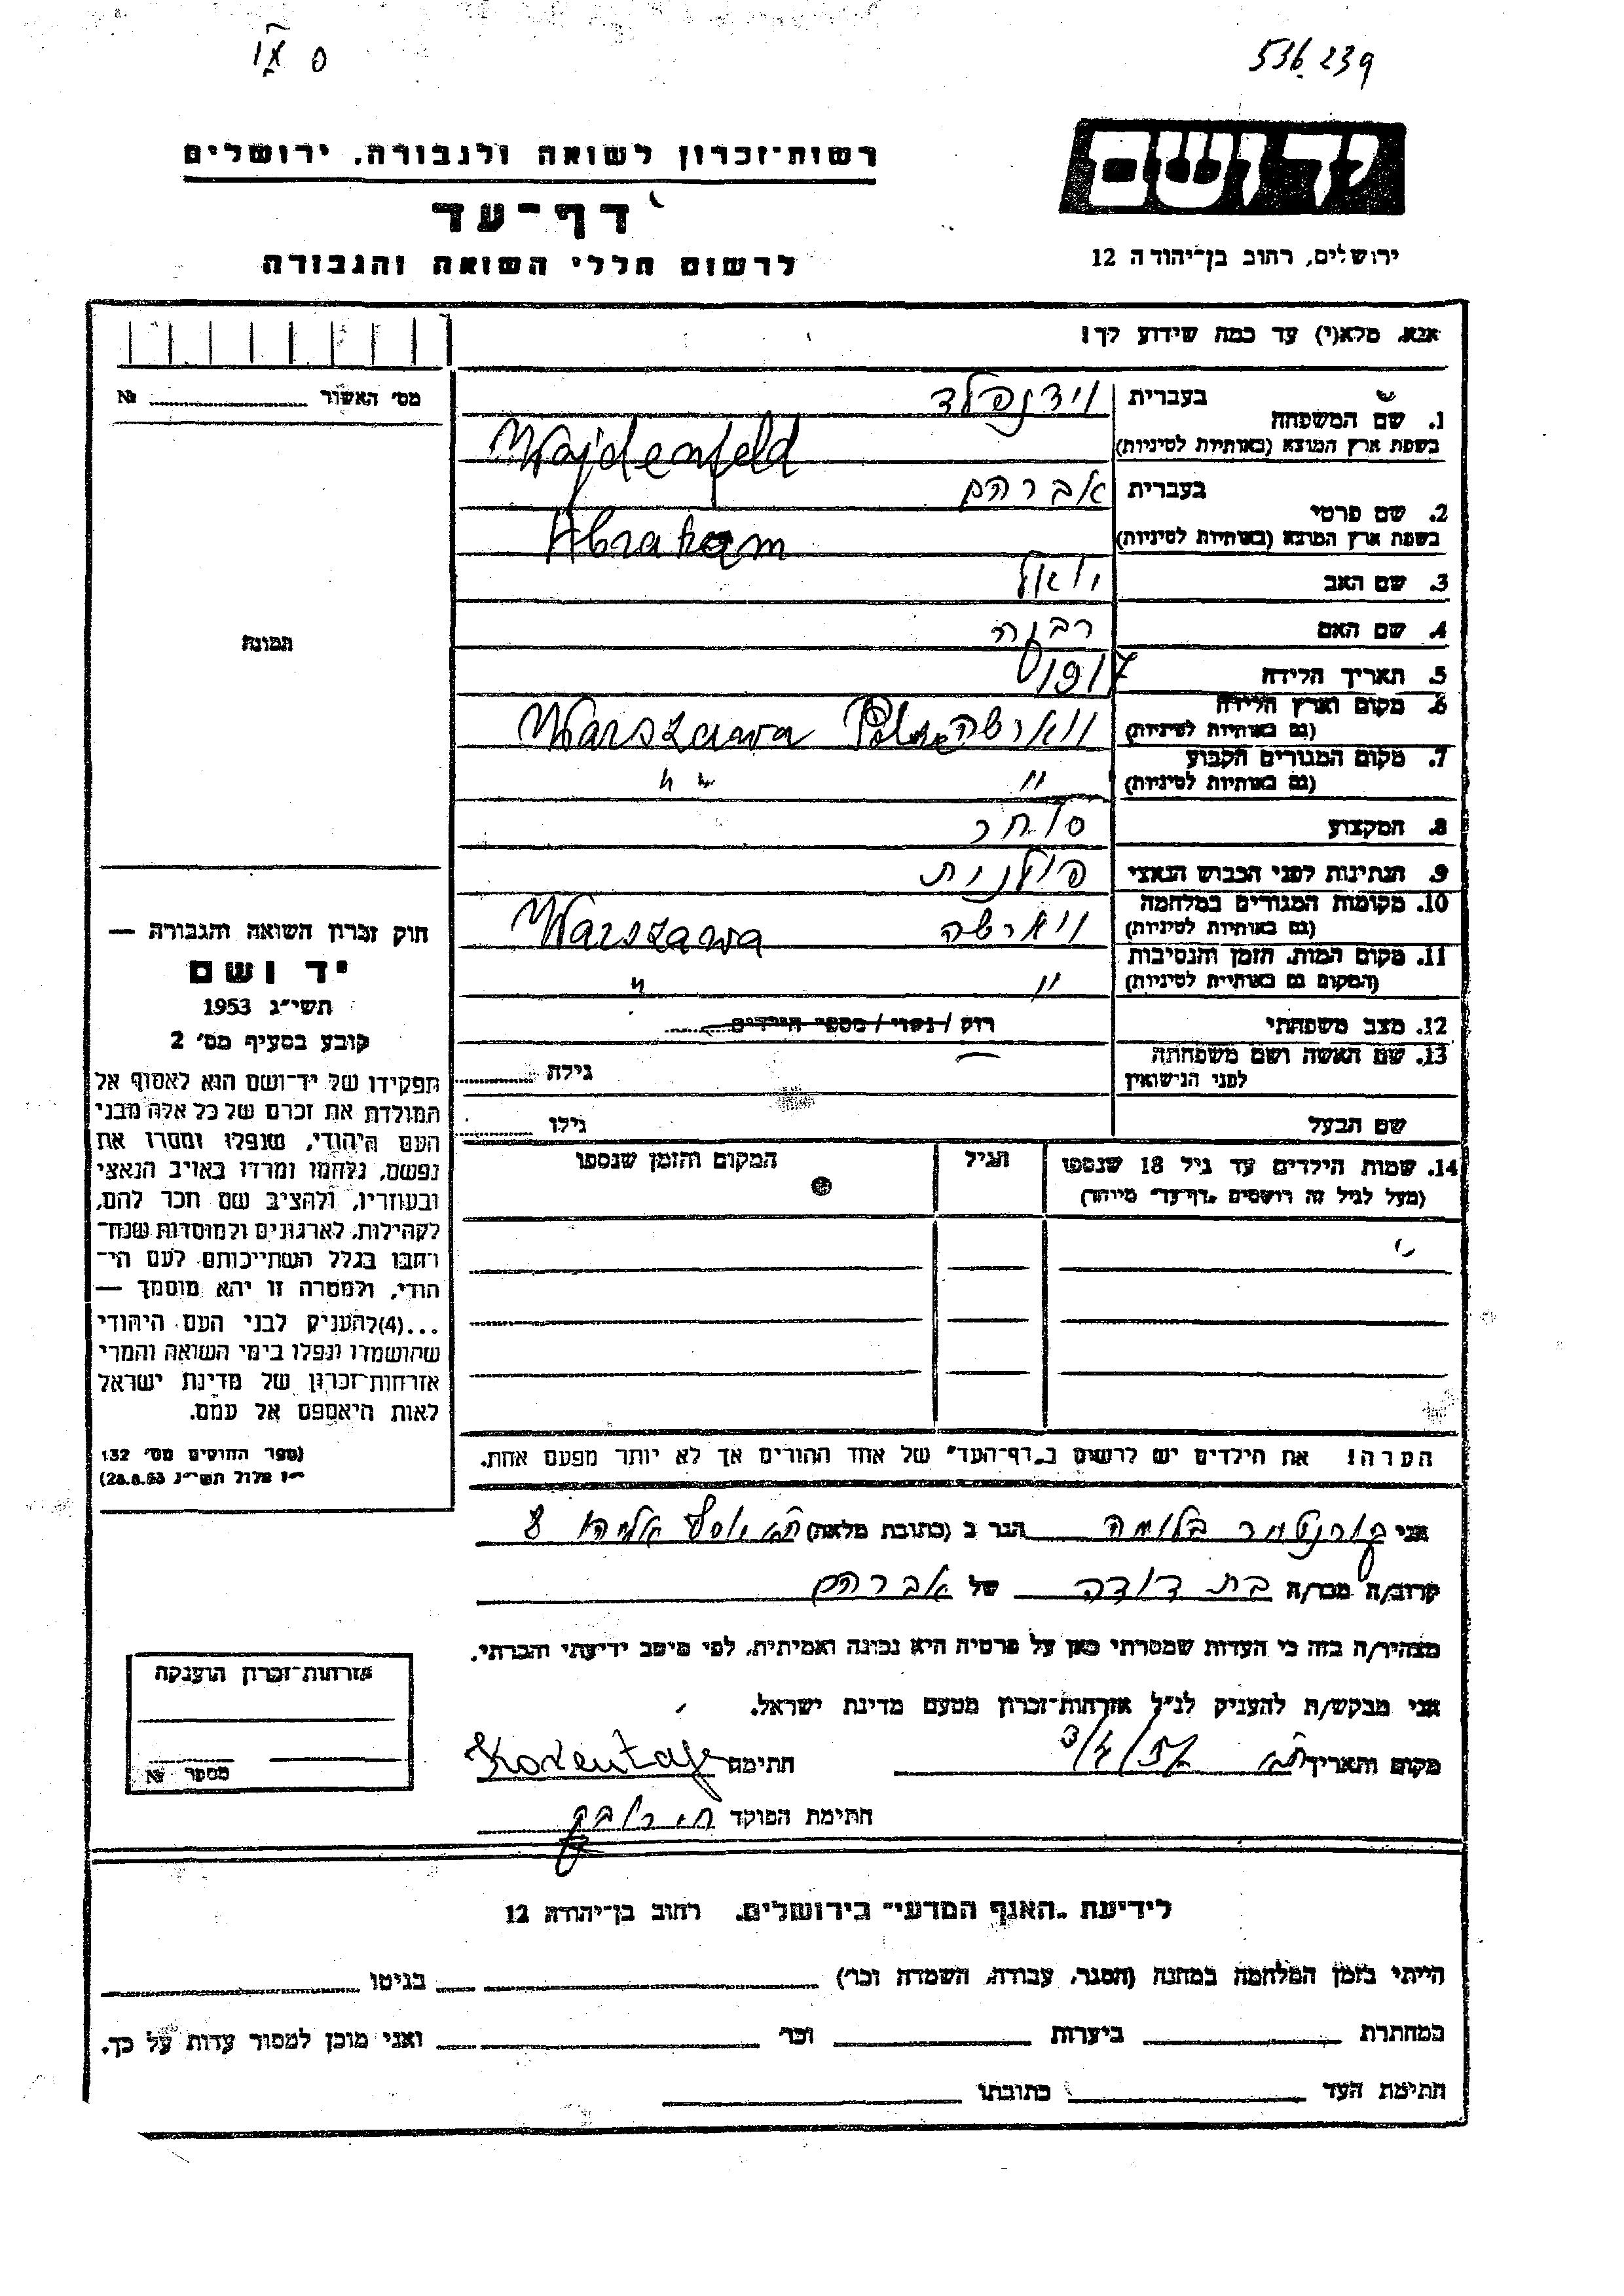 536239
רשות־זכרון לשואה ולגבורה, ירושלים
דף־עד
לרשום חללי השואה והגבורה
יד ושם
ירושלים, רחוב בן־יהודה 12
אנא, מלא(י) עד כמה שידוע לך!
מס׳ האשור № 
1. שם המשפחה בעברית וידנפלד
בשפת ארץ המוצא (באותיות לטיניות) Wajdenfeld
2. שם פרטי בעברית אברהם
בשפת ארץ המוצא (באותיות לטיניות) Abraham
3. שם האב יואל
4. שם האם רבקה
5. תאריך הלידה 1917
6. מקום וארץ הלידה (גם באותיות לטיניות) ווארשה Warszawa
7. מקום המגורים הקבוע (גם באותיות לטיניות) " "
8. המקצוע סוחר
9. הנתינות לפני הכבוש הנאצי פולנית
10. מקומות המגורים במלחמה (גם באותיות לטיניות) ווארשה Warszawa
11. מקום המות, הזמן והנסיבות (המקום גם באותיות לטיניות) " "
12. מצב משפחתי רווק / נשוי / מספר הילדים
13. שם האשה ושם משפחתה לפני הנישואין גילה
שם הבעל גילו
14. שמות הילדים עד גיל 18 שנספו (מעל לגיל זה רושמים „דף־עד״ מיוחד) הגיל המקום והזמן שנספו
הערה! את הילדים יש לרשום ב„דף־העד״ של אחד ההורים אך לא יותר מפעם אחת.
תמונה
חוק זכרון השואה והגבורה —
יד ושם
תשי״ג 1953
קובע בסעיף מס׳ 2
תפקידו של יד־ושם הוא לאסוף אל
המולדת את זכרם של כל אלה מבני
העם היהודי, שנפלו ומסרו את
נפשם, נלחמו ומרדו באויב הנאצי
ובעוזריו, ולהציב שם וזכר להם,
לקהילות, לארגונים ולמוסדות שנח־
רבו בגלל השתייכותם לעם הי־
הודי, ולמטרה זו יהא מוסמך —
...(4) להעניק לבני העם היהודי
שהושמדו ונפלו בימי השואה והמרי
אזרחות־זכרון של מדינת ישראל
לאות היאספם אל עמם.
(ספר החוקים מס׳ 132,
י״ז אלול תשי״ג 28.8.53)
אני בלומה הגר ב (כתובת מלאה)
קרוב/ה מכר/ה בת דודה של אברהם
מצהיר/ה בזה כי העדות שמסרתי כאן על פרטיה היא נכונה ואמיתית, לפי מיטב ידיעתי והכרתי.
אני מבקש/ת להעניק לנ״ל אזרחות־זכרון מטעם מדינת ישראל.
מקום ותאריך חתימה
חתימת הפוקד
אזרחות־זכרון הוענקה
מספר №
לידיעת „האגף המדעי״ בירושלים, רחוב בן־יהודה 12
הייתי בזמן המלחמה במחנה (הסגר, עבודה, השמדה וכו׳) בגיטו
במחתרת ביערות וכו׳ ואני מוכן למסור עדות על כך.
חתימת העד כתובתו